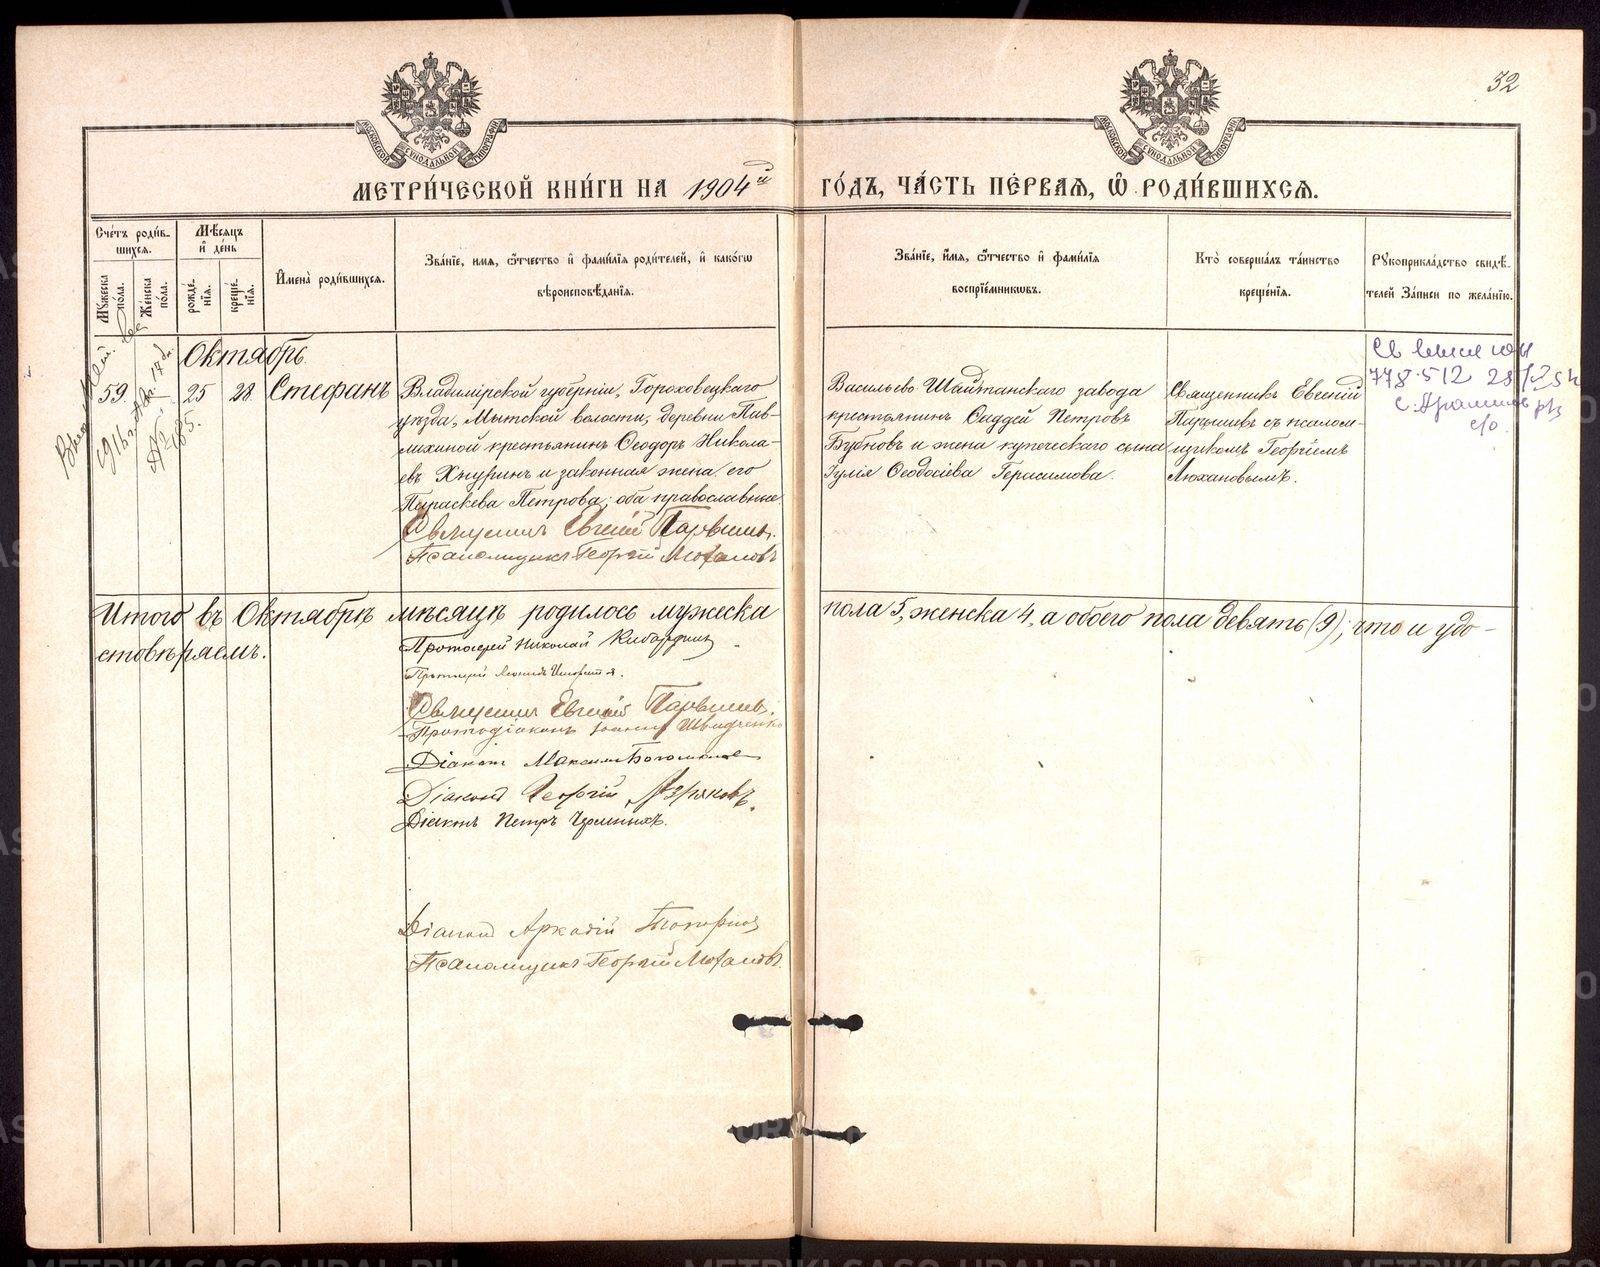 32
МОСКОВСКОЙ СѴНОДАЛЬНОЙ ТИПОГРАФІИ
МОСКОВСКОЙ СѴНОДАЛЬНОЙ ТИПОГРАФІИ
МЕТРИ́ЧЕСКОЙ КНИ́ГИ НА 1904й ГО́ДЪ, ЧА́СТЬ ПЕ́РВАѦ, Ѽ РОДИ́ВШИХСѦ.
Сче́тъ роди́в-
шихсѧ.
Мꙋ́жеска по́ла.
Же́нска по́ла.
Мѣ́сѧцъ
и҆ де́нь
рожде́-
нїѧ.
креще́-
нїѧ.
И҆мена̀ роди́вшихсѧ.
Зва́нїе, имѧ, ѻ҆́тчество и҆ фами́лїѧ роди́телей, и҆ како́гѡ
вѣроисповѣ́данїѧ.
Зва́нїе, и҆́мѧ, ѻ҆́тчество и҆ фами́лїѧ
воспрїе́мникѡвъ.
Кто̀ соверша́лъ та́инство
креще́нїѧ.
Рꙋкоприкла́дство свидѣ́-
телей За́писи по жела́нїю.
Октябрь.
59. 25 28 Стефанъ
Владимірской губерніи, Гороховецкаго
уѣзда, Мытской волости, деревни Пав-
лихиной крестьянинъ Ѳеодоръ Никола-
евъ Хнуринъ и законная жена его
Параскева Петрова; оба православные
Священникъ Евгеній Парышевъ.
Псаломщикъ Георгій Люхановъ
Васильево Шайтанскаго завода
крестьянинъ Ѳаддей Петровъ
Бубновъ и жена купеческаго сына
Іулія Ѳеодосіева Герасимова.
Священникъ Евгеній
Парышевъ съ псалом-
щикомъ Георгіемъ
Люхановымъ.
778.512
Итого въ Октябрѣ мѣсяцѣ родилось мужеска пола 5, женска 4, а обоего пола девять (9); что и удо-
стовѣряемъ.
Протоіерей Николай
Протоіерей
Священникъ Евгеній Парышевъ.
Протодіаконъ Іоаннъ Швидченко
Діаконъ Максимъ Богомоловъ
Діаконъ Георгій
Діаконъ Петръ
Діаконъ Аркадій
Псаломщикъ Георгій Люхановъ.